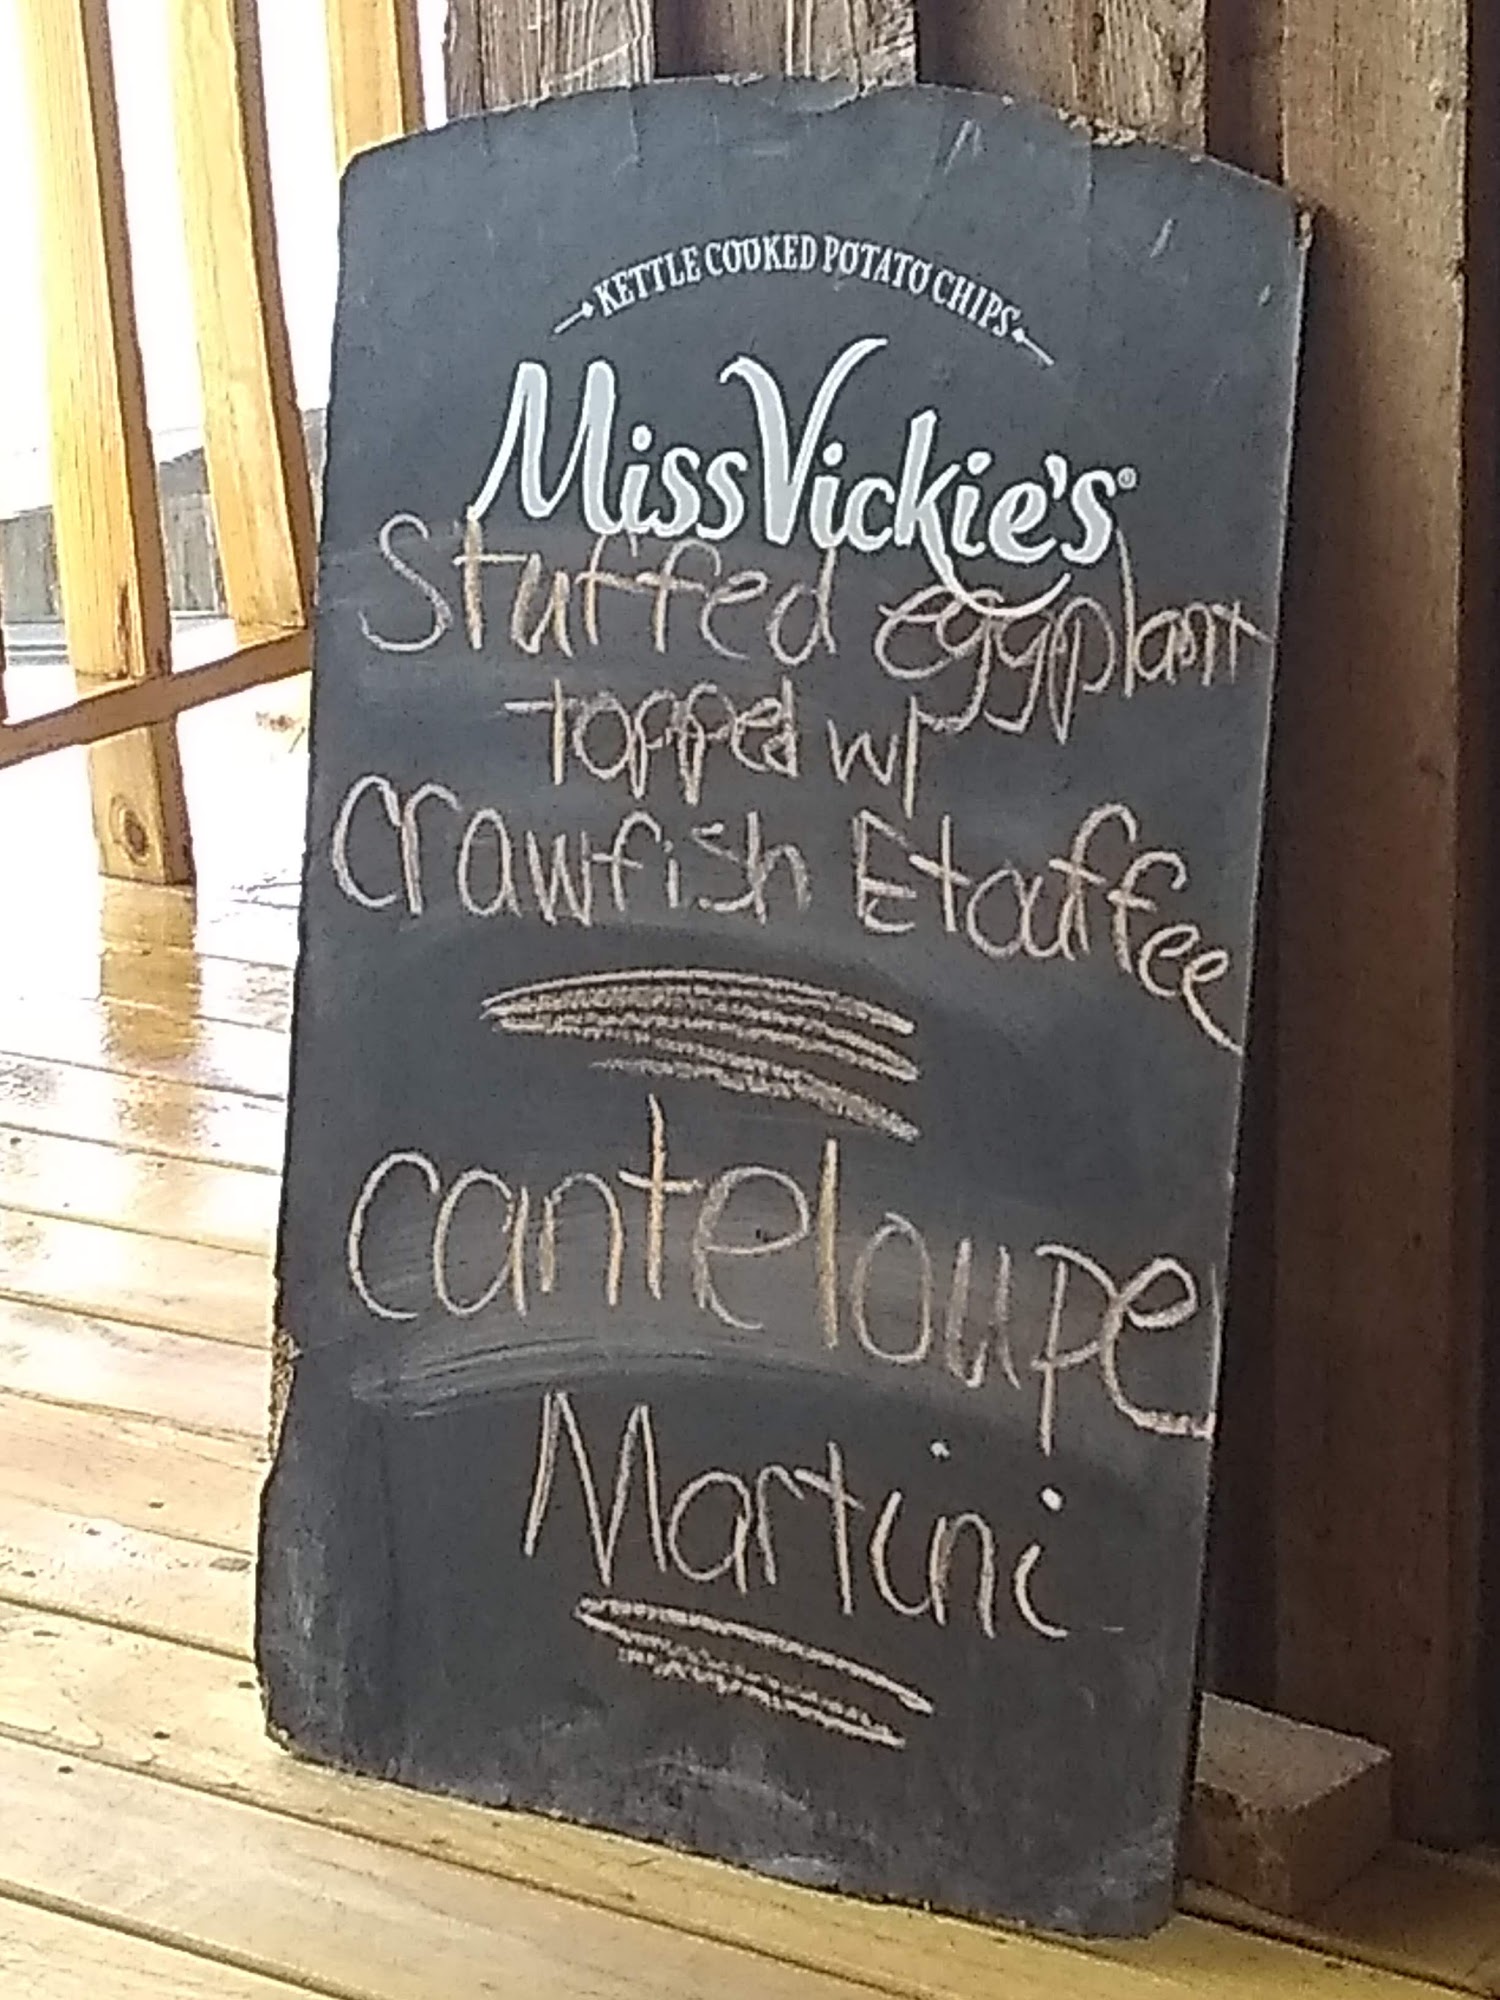 KETTLE COOKED POTATO CHIPS
Miss Vickie's®
Stuffed eggplant
topped w/
Crawfish Etouffee
canteloupe
Martini